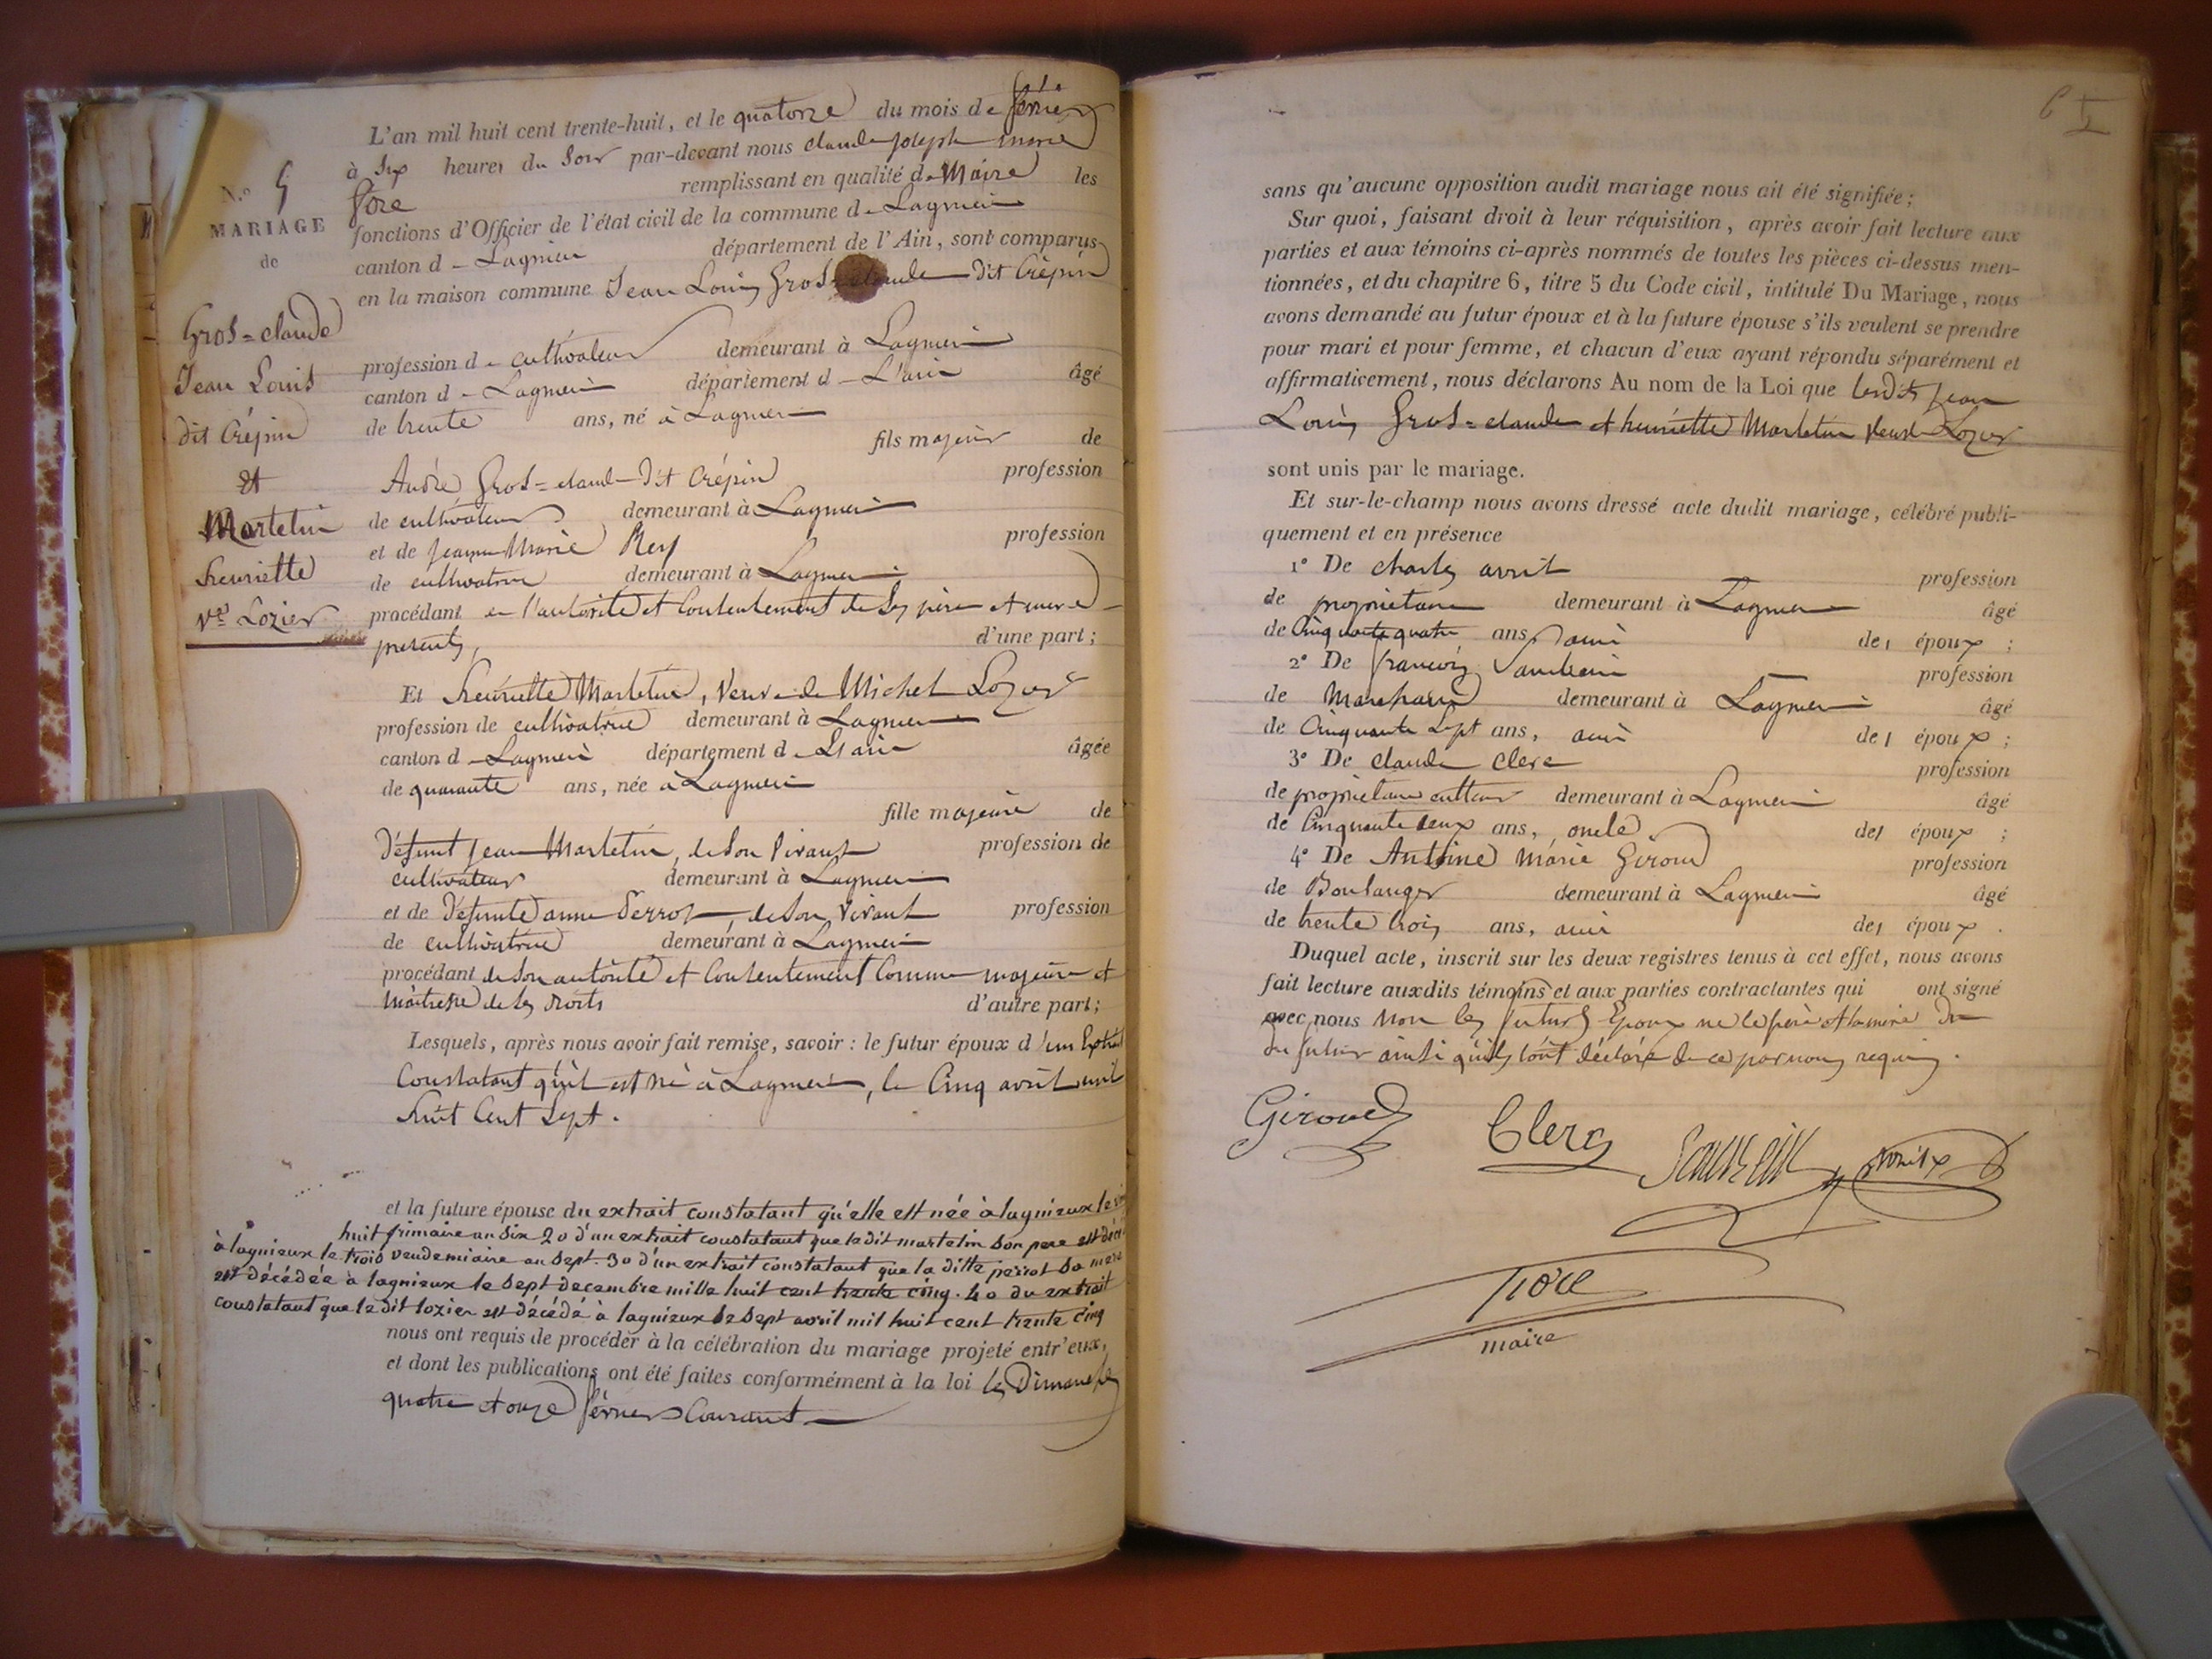 L'an mil huit cent trente-huit, et le quatorze du mois de février
à six heures du soir par-devant nous claude joseph marie
fore remplissant en qualité de Maire les
fonctions d'Officier de l'état civil de la commune de Lagnieu
canton de Lagnieu département de l'Ain, sont comparus
en la maison commune Jean Louis Gros=claude dit Crépin
profession de cultivateur demeurant à Lagnieu
canton de Lagnieu département de L'ain âgé
de trente ans, né à Lagnieu
fils majeur de
André Gros=claude dit Crépin profession
de cultivateur demeurant à Lagnieu
et de jeanne Marie Rey profession
de cultivatrice demeurant à Lagnieu
procédant en l'autorité et Consentement de Ses père et mere
presents, d'une part;
Et henriette Martelin, Veuve de Michel Lozier
profession de cultivatrice demeurant à Lagnieu
canton de Lagnieu département de L'ain âgée
de quarante ans, née à Lagnieu
fille majeure de
défunt jean Martelin, de Son Vivant profession de
cultivateur demeurant à Lagnieu
et de défunte anne Perrot, de Son Vivant profession
de cultivatrice demeurant à Lagnieu
procédant de Son autorité et Consentement Comme majeure et
maitresse de Ses droits d'autre part;
Lesquels, après nous avoir fait remise, savoir: le futur époux d'un Extrait
Constatant qu'il est né à Lagnieu, le Cinq avril mil
huit Cent Sept.
et la future épouse du extrait constatant qu'elle est née à lagnieux le
huit frimaire an six 2o d'un extrait constatant que le dit martelin son pere est décé
à lagnieux le trois vendemiaire an sept. 3o d'un extrait constatant que la ditte perrot sa mere
est décédée à lagnieux le sept decembre mille huit cent trente cinq. 4o du extrait
constatant que le dit lozier est décédé à lagnieux le sept avril mil huit cent trente cinq
nous ont requis de procéder à la célébration du mariage projeté entr'eux,
et dont les publications ont été faites conformément à la loi les Dimanches
quatre et onze février Courant
N.º 5
MARIAGE
de
Gros=claude
Jean Louis
dit Crépin
et
Martelin
henriette
Vve Lozier
6 5
sans qu'aucune opposition audit mariage nous ait été signifiée;
Sur quoi, faisant droit à leur réquisition, après avoir fait lecture aux
parties et aux témoins ci-après nommés de toutes les pièces ci-dessus men-
tionnées, et du chapitre 6, titre 5 du Code civil, intitulé Du Mariage, nous
avons demandé au futur époux et à la future épouse s'ils veulent se prendre
pour mari et pour femme, et chacun d'eux ayant répondu séparément et
affirmativement, nous déclarons Au nom de la Loi que lesdits jean
Louis Gros=claude et henriette Martelin Veuve Lozier
sont unis par le mariage.
Et sur-le-champ nous avons dressé acte dudit mariage, célébré publi-
quement et en présence
1º De charles profession
de propriétaire demeurant à Lagnieu âgé
de Cinquante quatre ans, ami des époux;
2º De françois profession
de Marchand demeurant à Lagnieu âgé
de Cinquante Sept ans, ami des époux;
3º De claude clerc profession
de propriétaire cultivateur demeurant à Lagnieu âgé
de Cinquante deux ans, oncle des époux;
4º De Antoine Marie Giroud profession
de Boulanger demeurant à Lagnieu âgé
de trente trois ans, ami des époux.
Duquel acte, inscrit sur les deux registres tenus à cet effet, nous avons
fait lecture auxdits témoins et aux parties contractantes qui ont signé
avec nous non les futurs Epoux ne le père et la mère du
du futur ainsi qu'ils l'ont déclaré de ce par nous requis.
Giroud Clerc
fore
maire